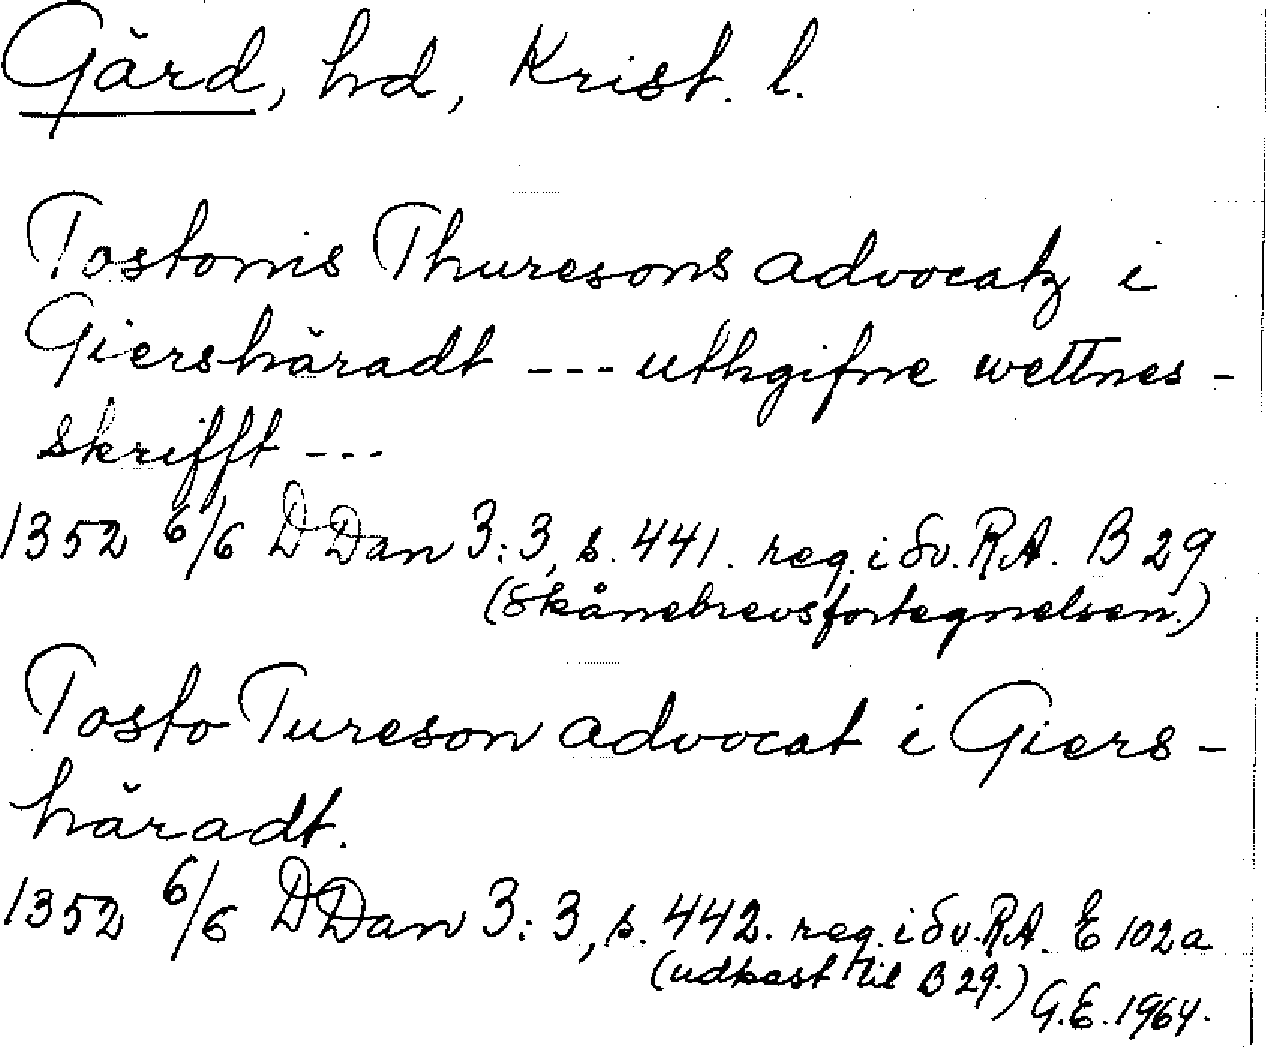 Gärd, hd, Krist. l.
Tostonis Thuresons advocatz i
Giershäradt --- uthgifne wettnes-
skrifft ---
1352 6/6 DDan 3:3, s. 441. reg. i Sv. RA. B 29
(Skånebrevsfortegnelsen.)
Tosto Tureson advocat i Giers-
häradt.
1352 6/6 DDan 3:3, s. 442. reg. i Sv. RA. E 102a
(udkast til B 29.) G.E. 1964.